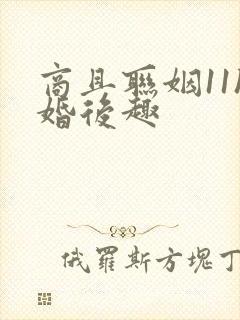 商且聯姻11
婚後趣
俄羅斯方塊丁